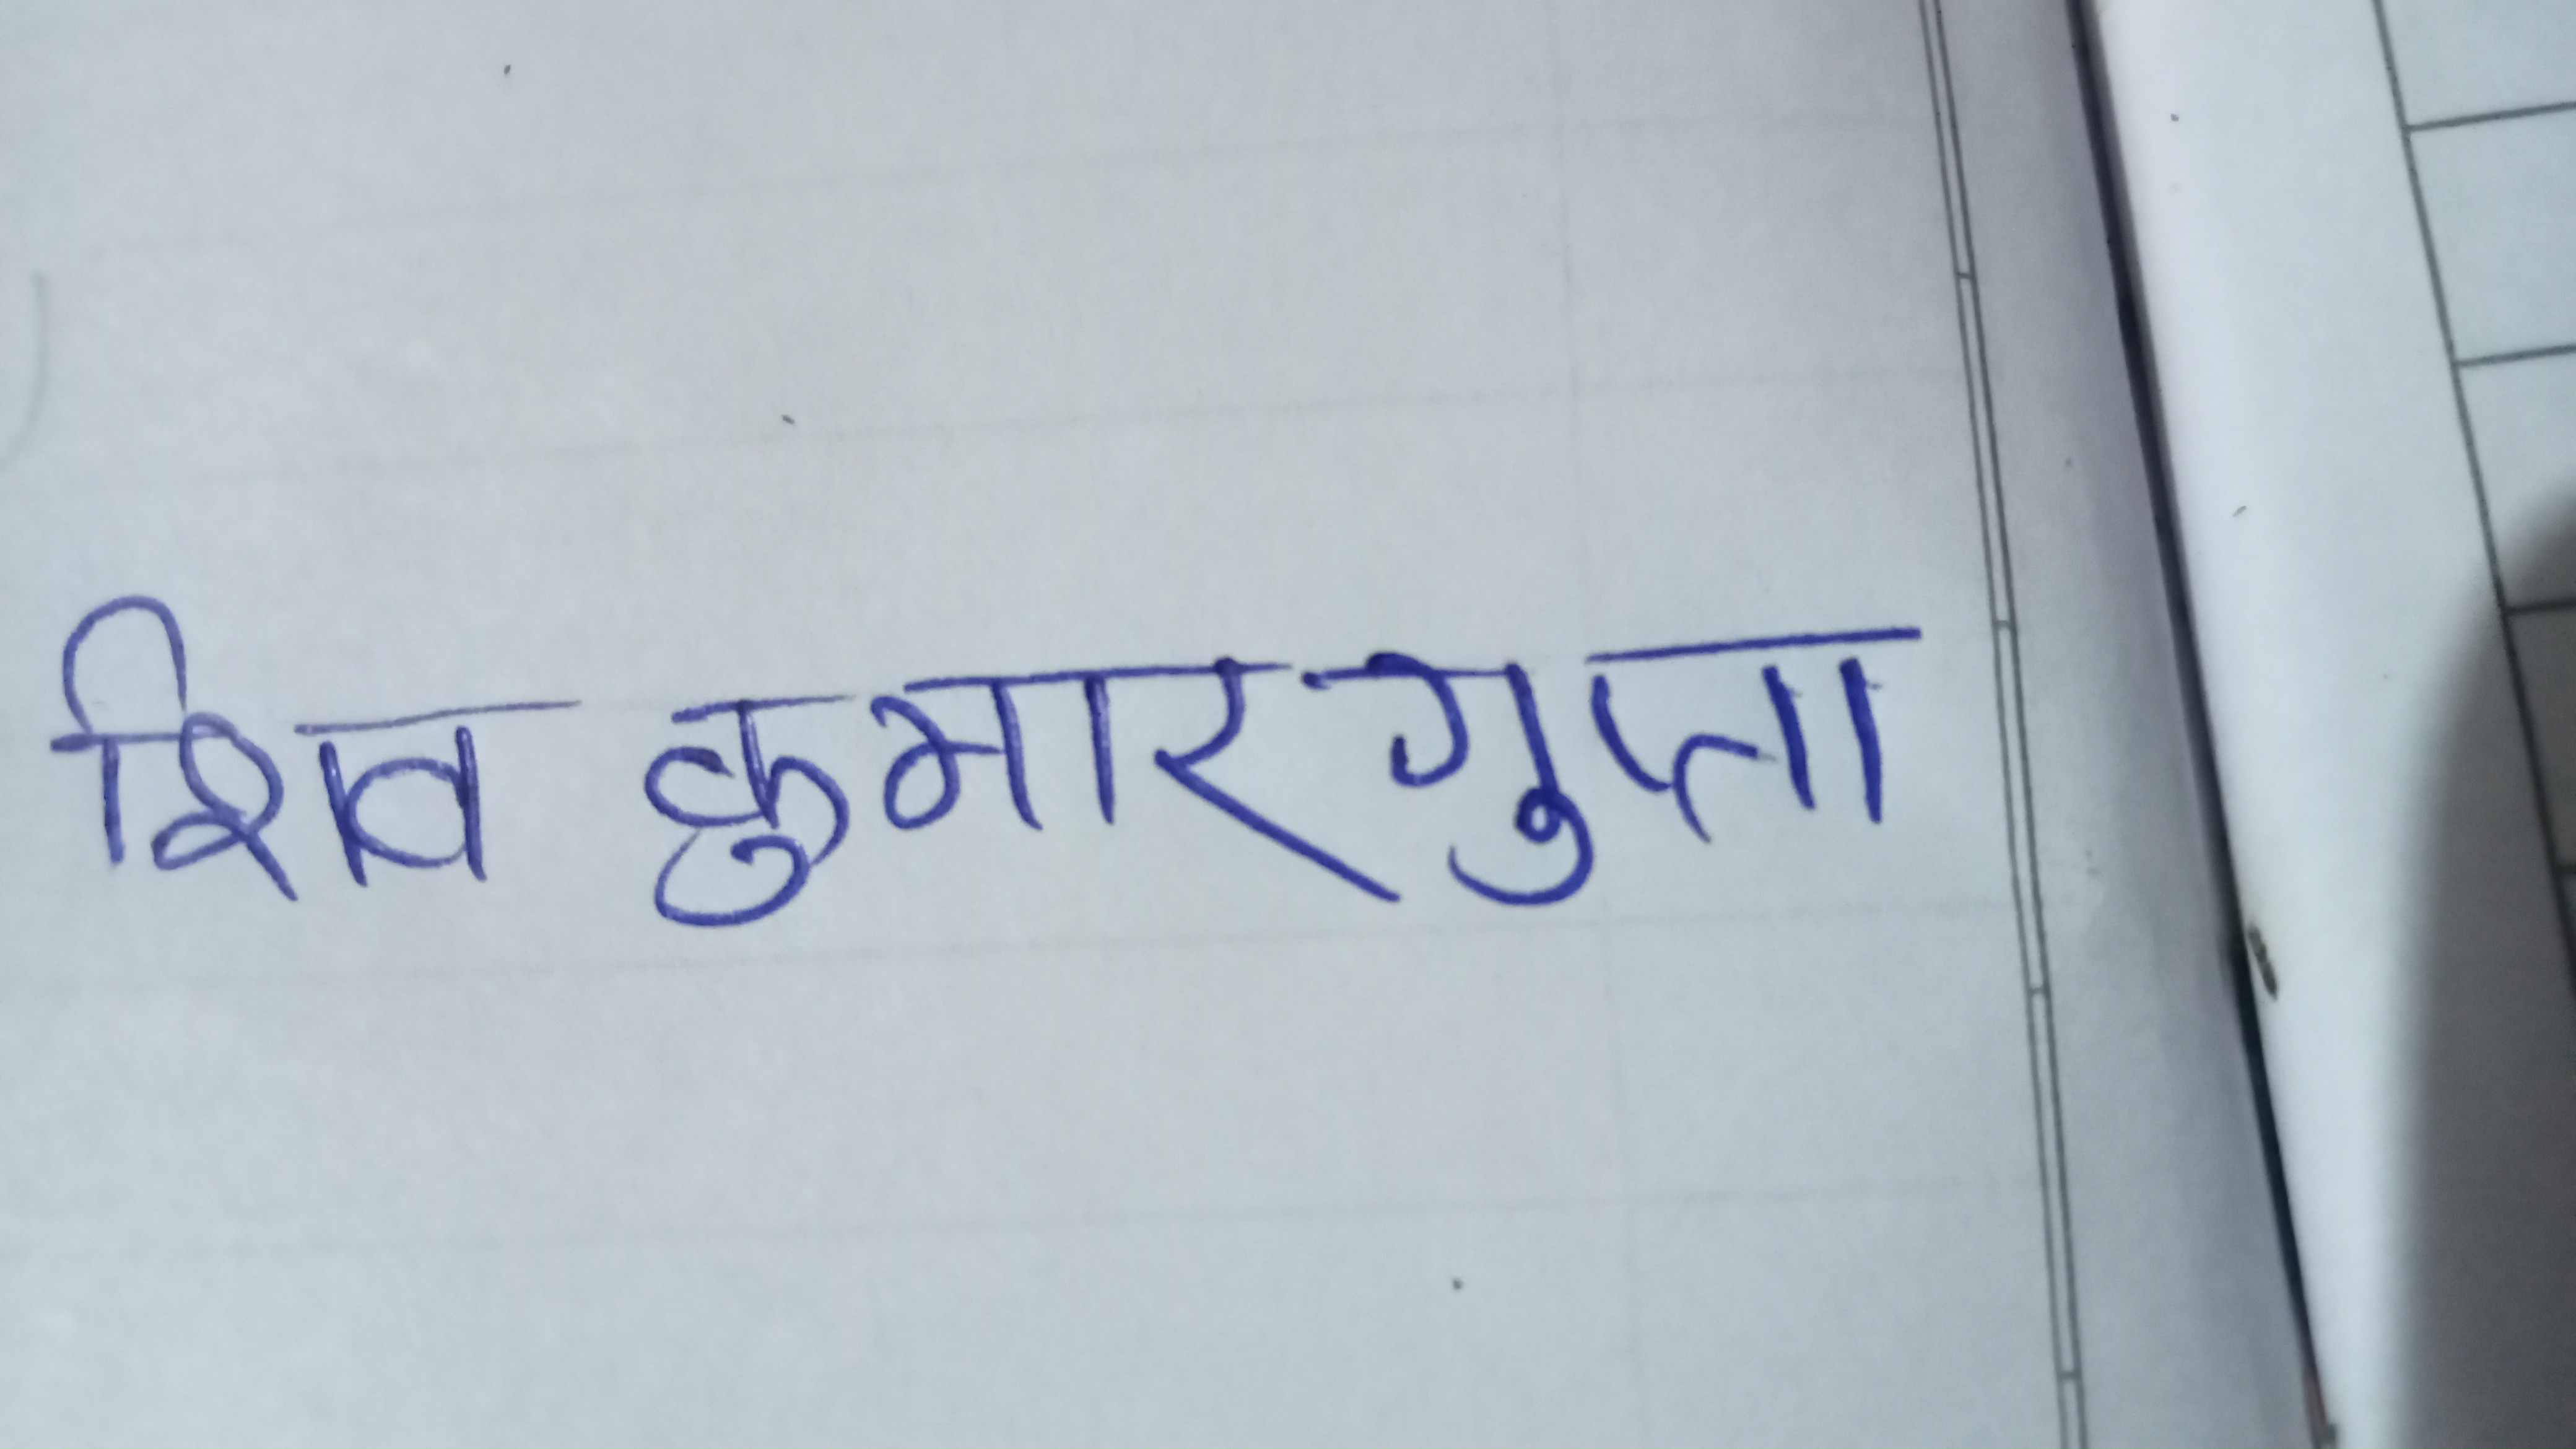 शिव कुमार गुप्ता